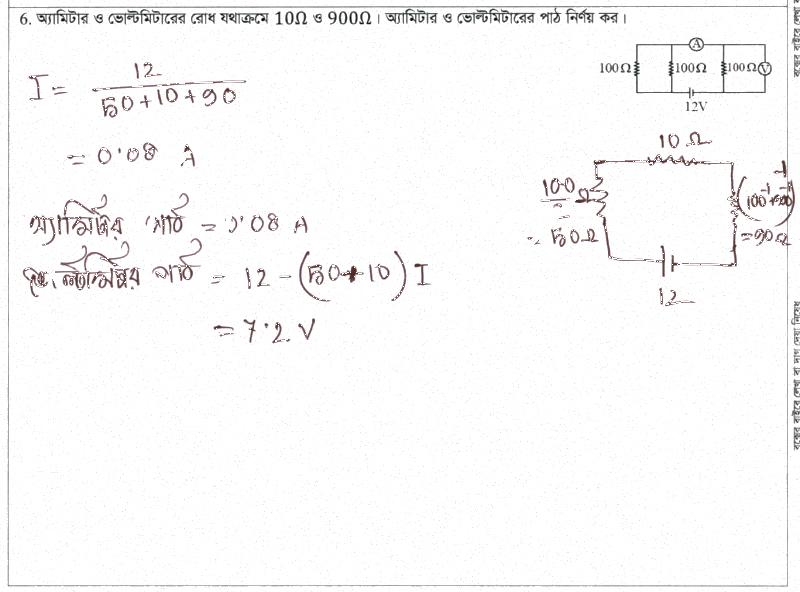 6. অ্যামিটার ও ভোল্টমিটারের রোধ যথাক্রমে 10Ω ও 900Ω। অ্যামিটার ও ভোল্টমিটারের পাঠ নির্ণয় কর।
A
100Ω 100Ω 100Ω V
12V
I = 12 / 50+10+90
= 0.08 A
অ্যামিটার পাঠ = 0.08 A
ভোল্টমিটার পাঠ = 12 - (50+10) I
= 7.2 V
10Ω
100 / 2 Ω
= 50Ω
= 90Ω
12